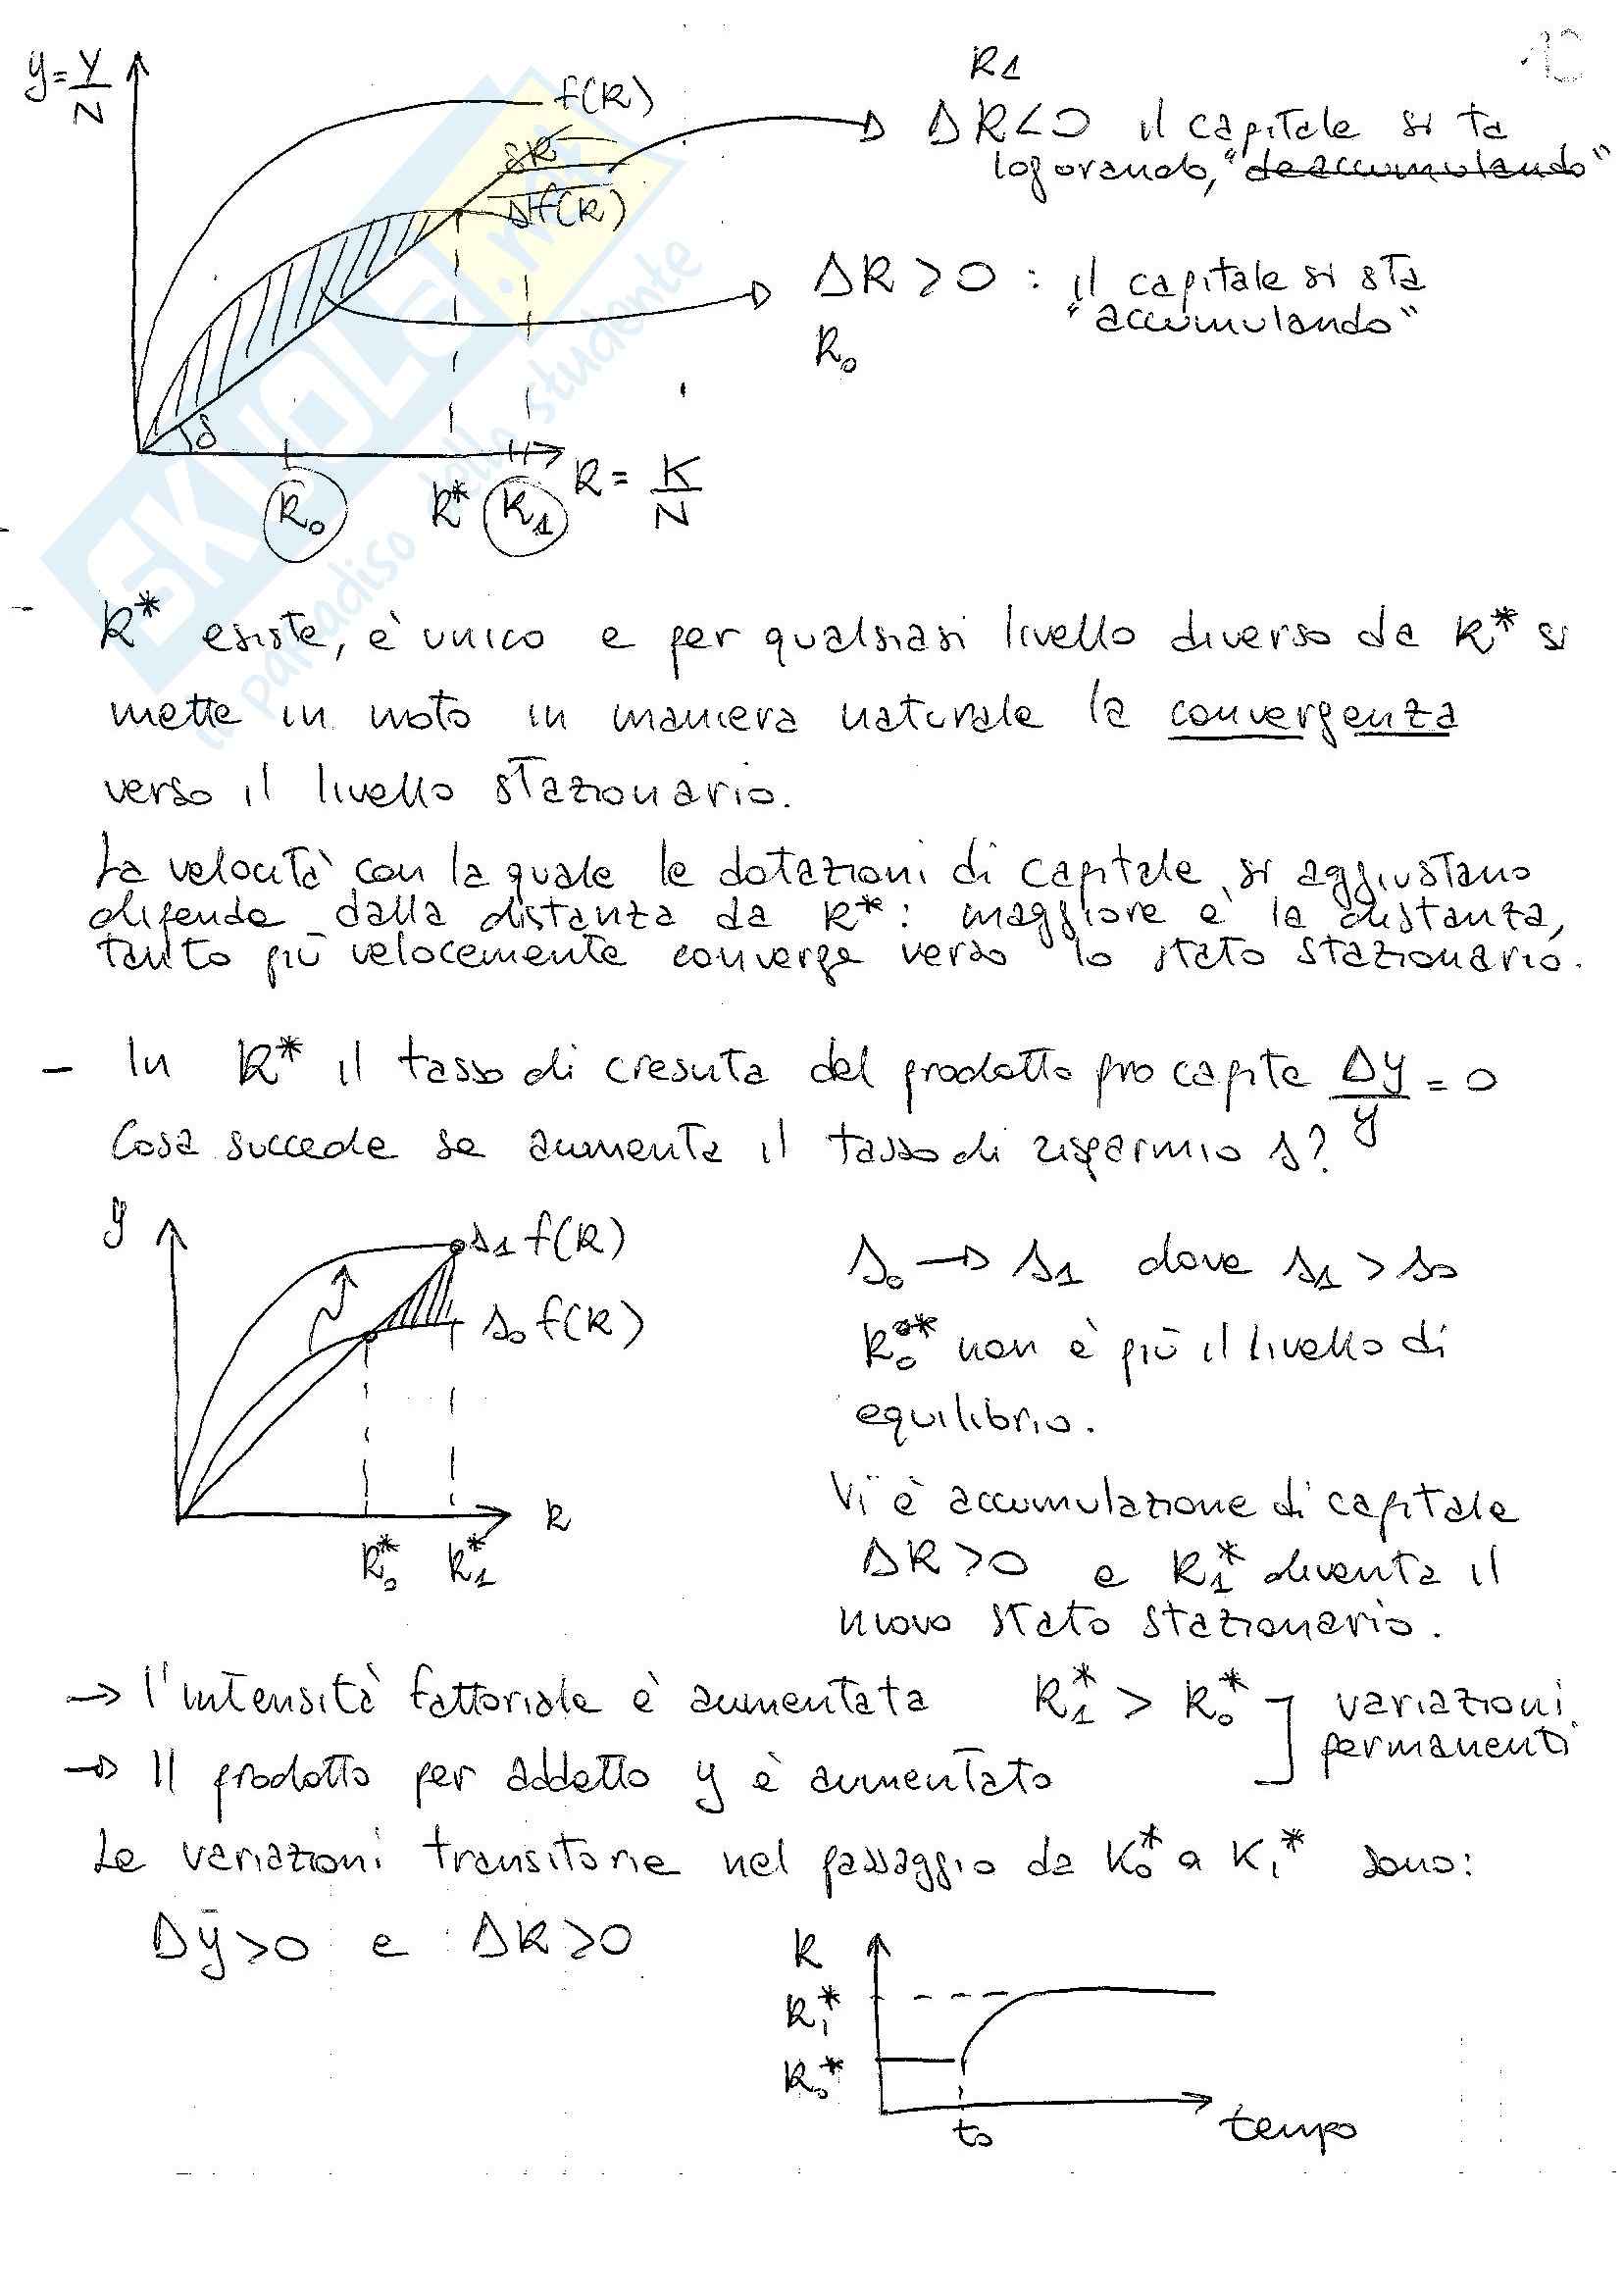 y = Y/N
f(k)
δk
sf(k)
k1
Δk<0 il capitale si sta
logorando, "deaccumulando"
Δk>0 : il capitale si sta
"accumulando"
k0
δ
k0 k* k1 k = K/N
SKUOLA.net
il paradiso dello studente
k* esiste, è unico e per qualsiasi livello diverso da k* si
mette in moto in maniera naturale la convergenza
verso il livello stazionario.
La velocità con la quale le dotazioni di capitale si aggiustano
dipende dalla distanza da k*: maggiore è la distanza,
tanto più velocemente converge verso lo stato stazionario.
- In k* il tasso di crescita del prodotto pro capite Δy/y = 0
Cosa succede se aumenta il tasso di risparmio s?
y
s1 f(k)
s0 f(k)
k
k0* k1*
s0 → s1 dove s1 > s0
k0* non è più il livello di
equilibrio.
Vi è accumulazione di capitale
Δk>0 e k1* diventa il
nuovo stato stazionario.
→ l'intensità fattoriale è aumentata k1* > k0* ] variazioni
permanenti
→ Il prodotto per addetto y è aumentato
Le variazioni transitorie nel passaggio da k0* a k1* sono:
Δy>0 e Δk>0
k
k1*
k0*
t0
tempo